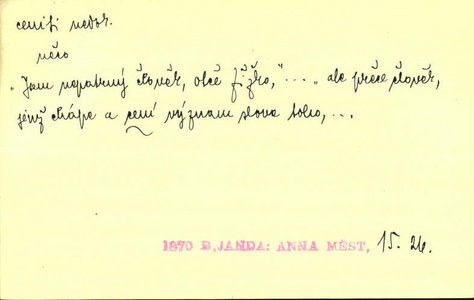 ceniti nedok.
něco
"Jsem nepatrný člověk, obč Žižko,"... "ale přece člověk,
jenž chápe a cení význam slova toho,...
1870 B.JANDA: ANNA MĚST, 15. 26.